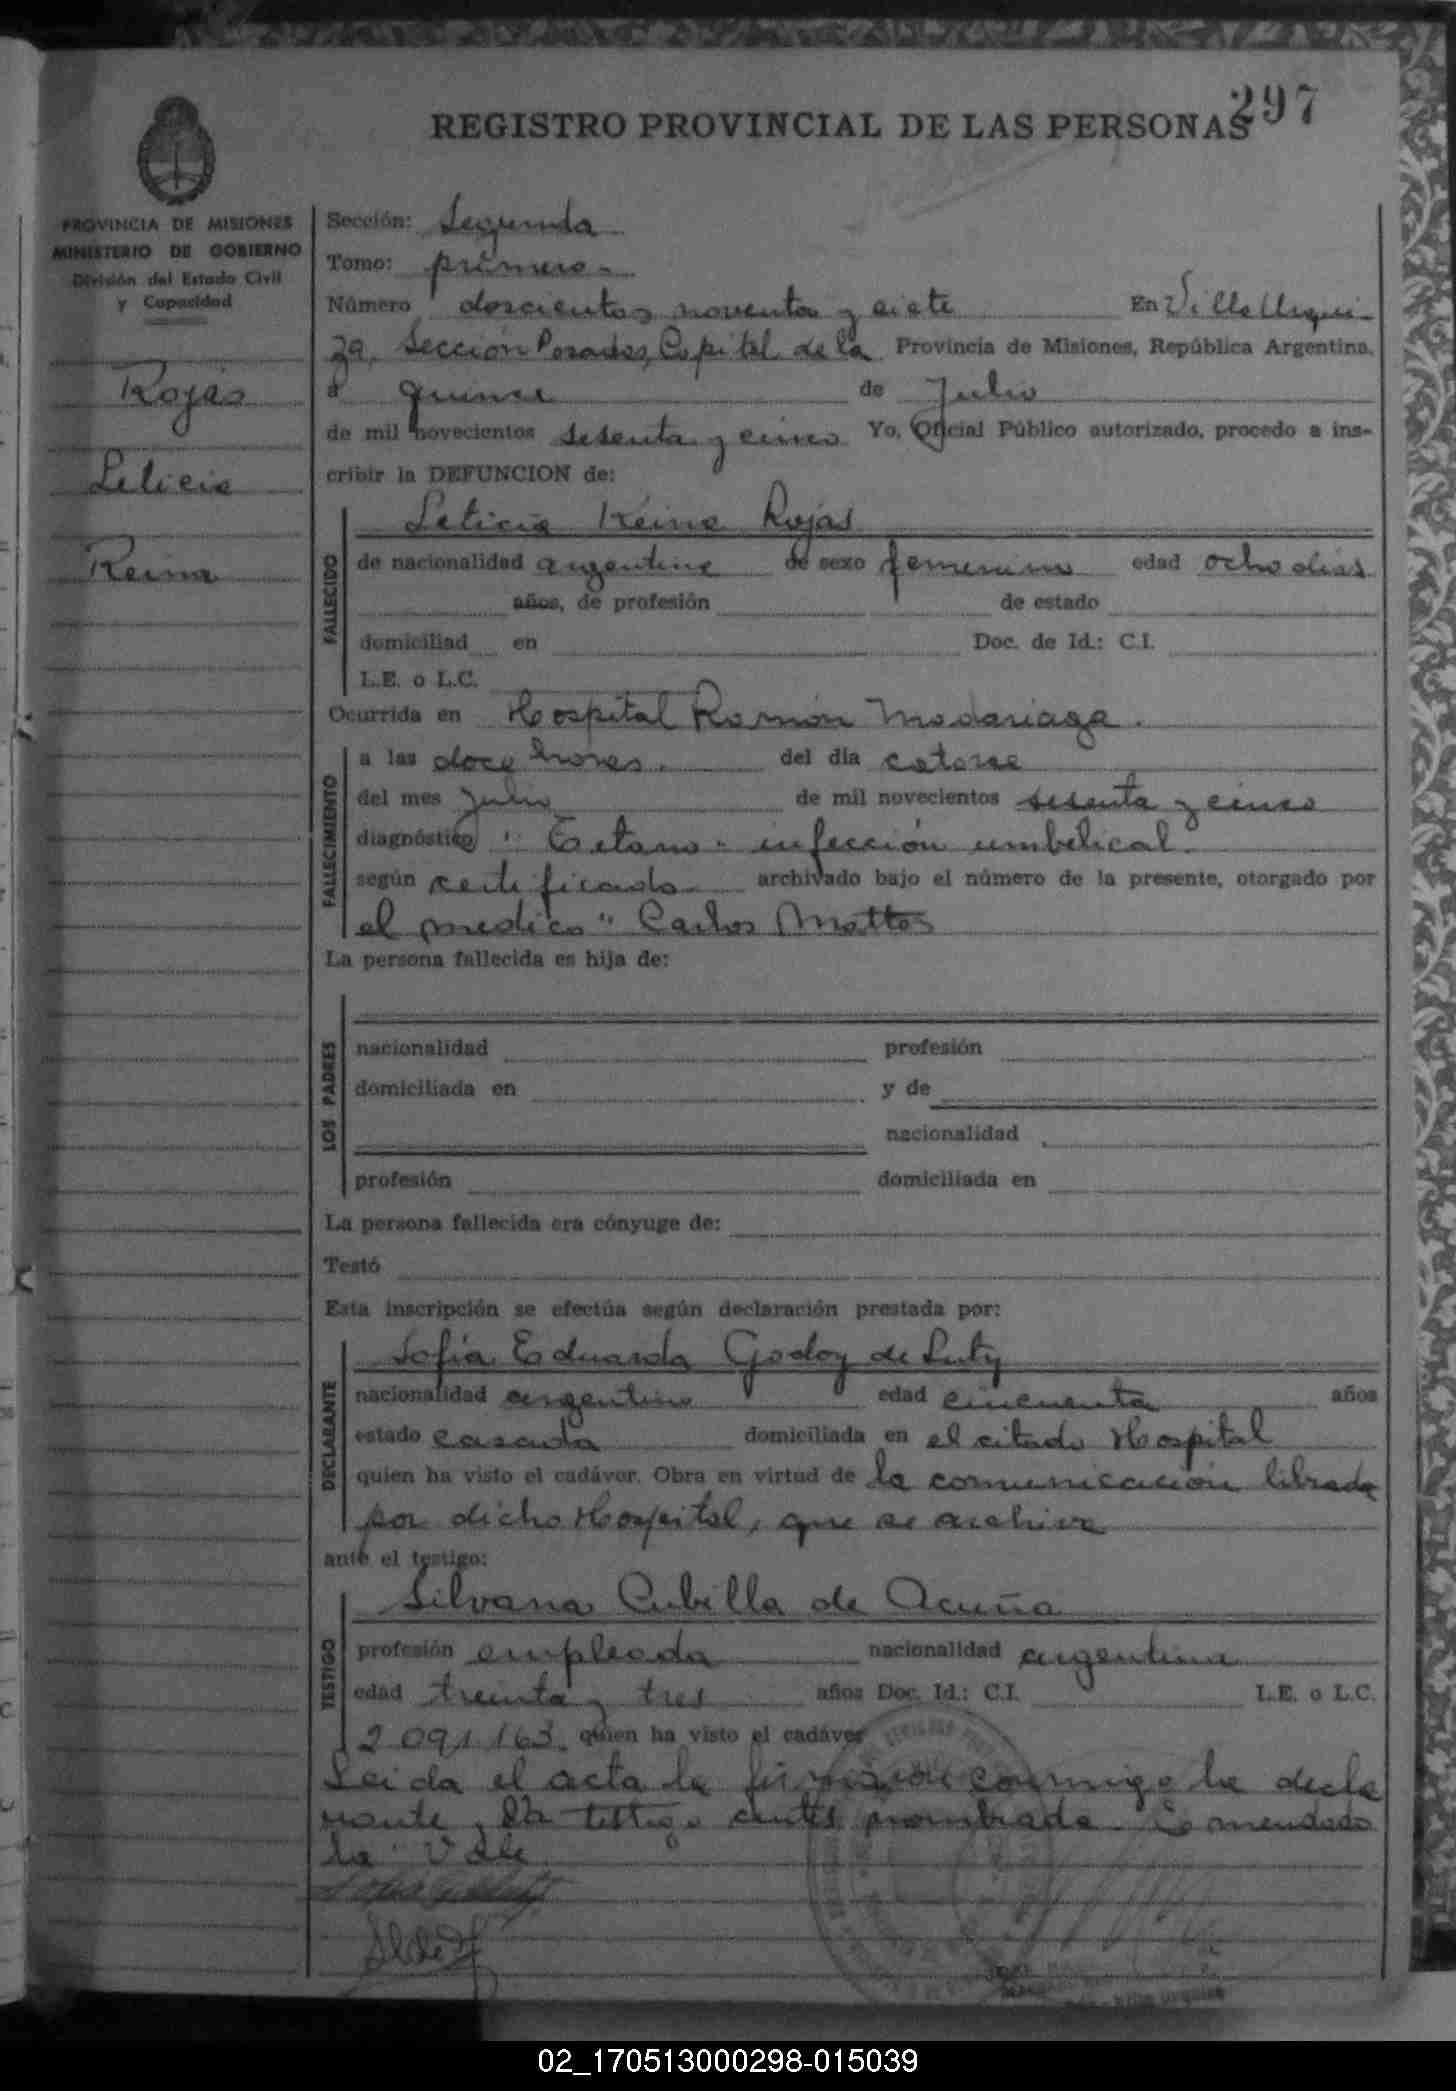 297
REGISTRO PROVINCIAL DE LAS PERSONAS
PROVINCIA DE MISIONES
MINISTERIO DE GOBIERNO
División del Estado Civil
y Capacidad
Rojas
Leticia
Reina
Sección: Segunda
Tomo: primero
Número doscientos noventa y siete En Villa Urqui-
za, Sección Posadas, Capital de la Provincia de Misiones, República Argentina,
a quince de Julio
de mil novecientos sesenta y cinco Yo, Oficial Público autorizado, procedo a ins-
cribir la DEFUNCION de:
Leticia Reina Rojas
FALLECIDO
de nacionalidad argentina de sexo femenino edad ocho días
años, de profesión de estado
domiciliad en Doc. de Id.: C.I.
L.E. o L.C.
Ocurrida en Hospital Ramón Madariaga.
FALLECIMIENTO
a las doce horas. del día catorce
del mes Julio de mil novecientos sesenta y cinco
diagnóstico "Tetano - infección umbelical.
según certificado archivado bajo el número de la presente, otorgado por
el medico" Carlos Mattos
La persona fallecida es hija de:
LOS PADRES
nacionalidad profesión
domiciliada en y de
nacionalidad
profesión domiciliada en
La persona fallecida era cónyuge de:
Testó
Esta inscripción se efectúa según declaración prestada por:
Sofía Eduarda Godoy de Luty
DECLARANTE
nacionalidad argentina edad cincuenta años
estado casada domiciliada en el citado Hospital
quien ha visto el cadáver. Obra en virtud de la comunicación librada
por dicho Hospital, que se archiva
ante el testigo:
Silvana Cubilla de Acuña
TESTIGO
profesión empleada nacionalidad argentina
edad treinta y tres años Doc. Id.: C.I. L.E. o L.C.
2.091.163. quien ha visto el cadáver
Leida el acta la firmaron conmigo la decla
rante y la testigo antes nombrada. Enmendado
la Vale
02_170513000298-015039